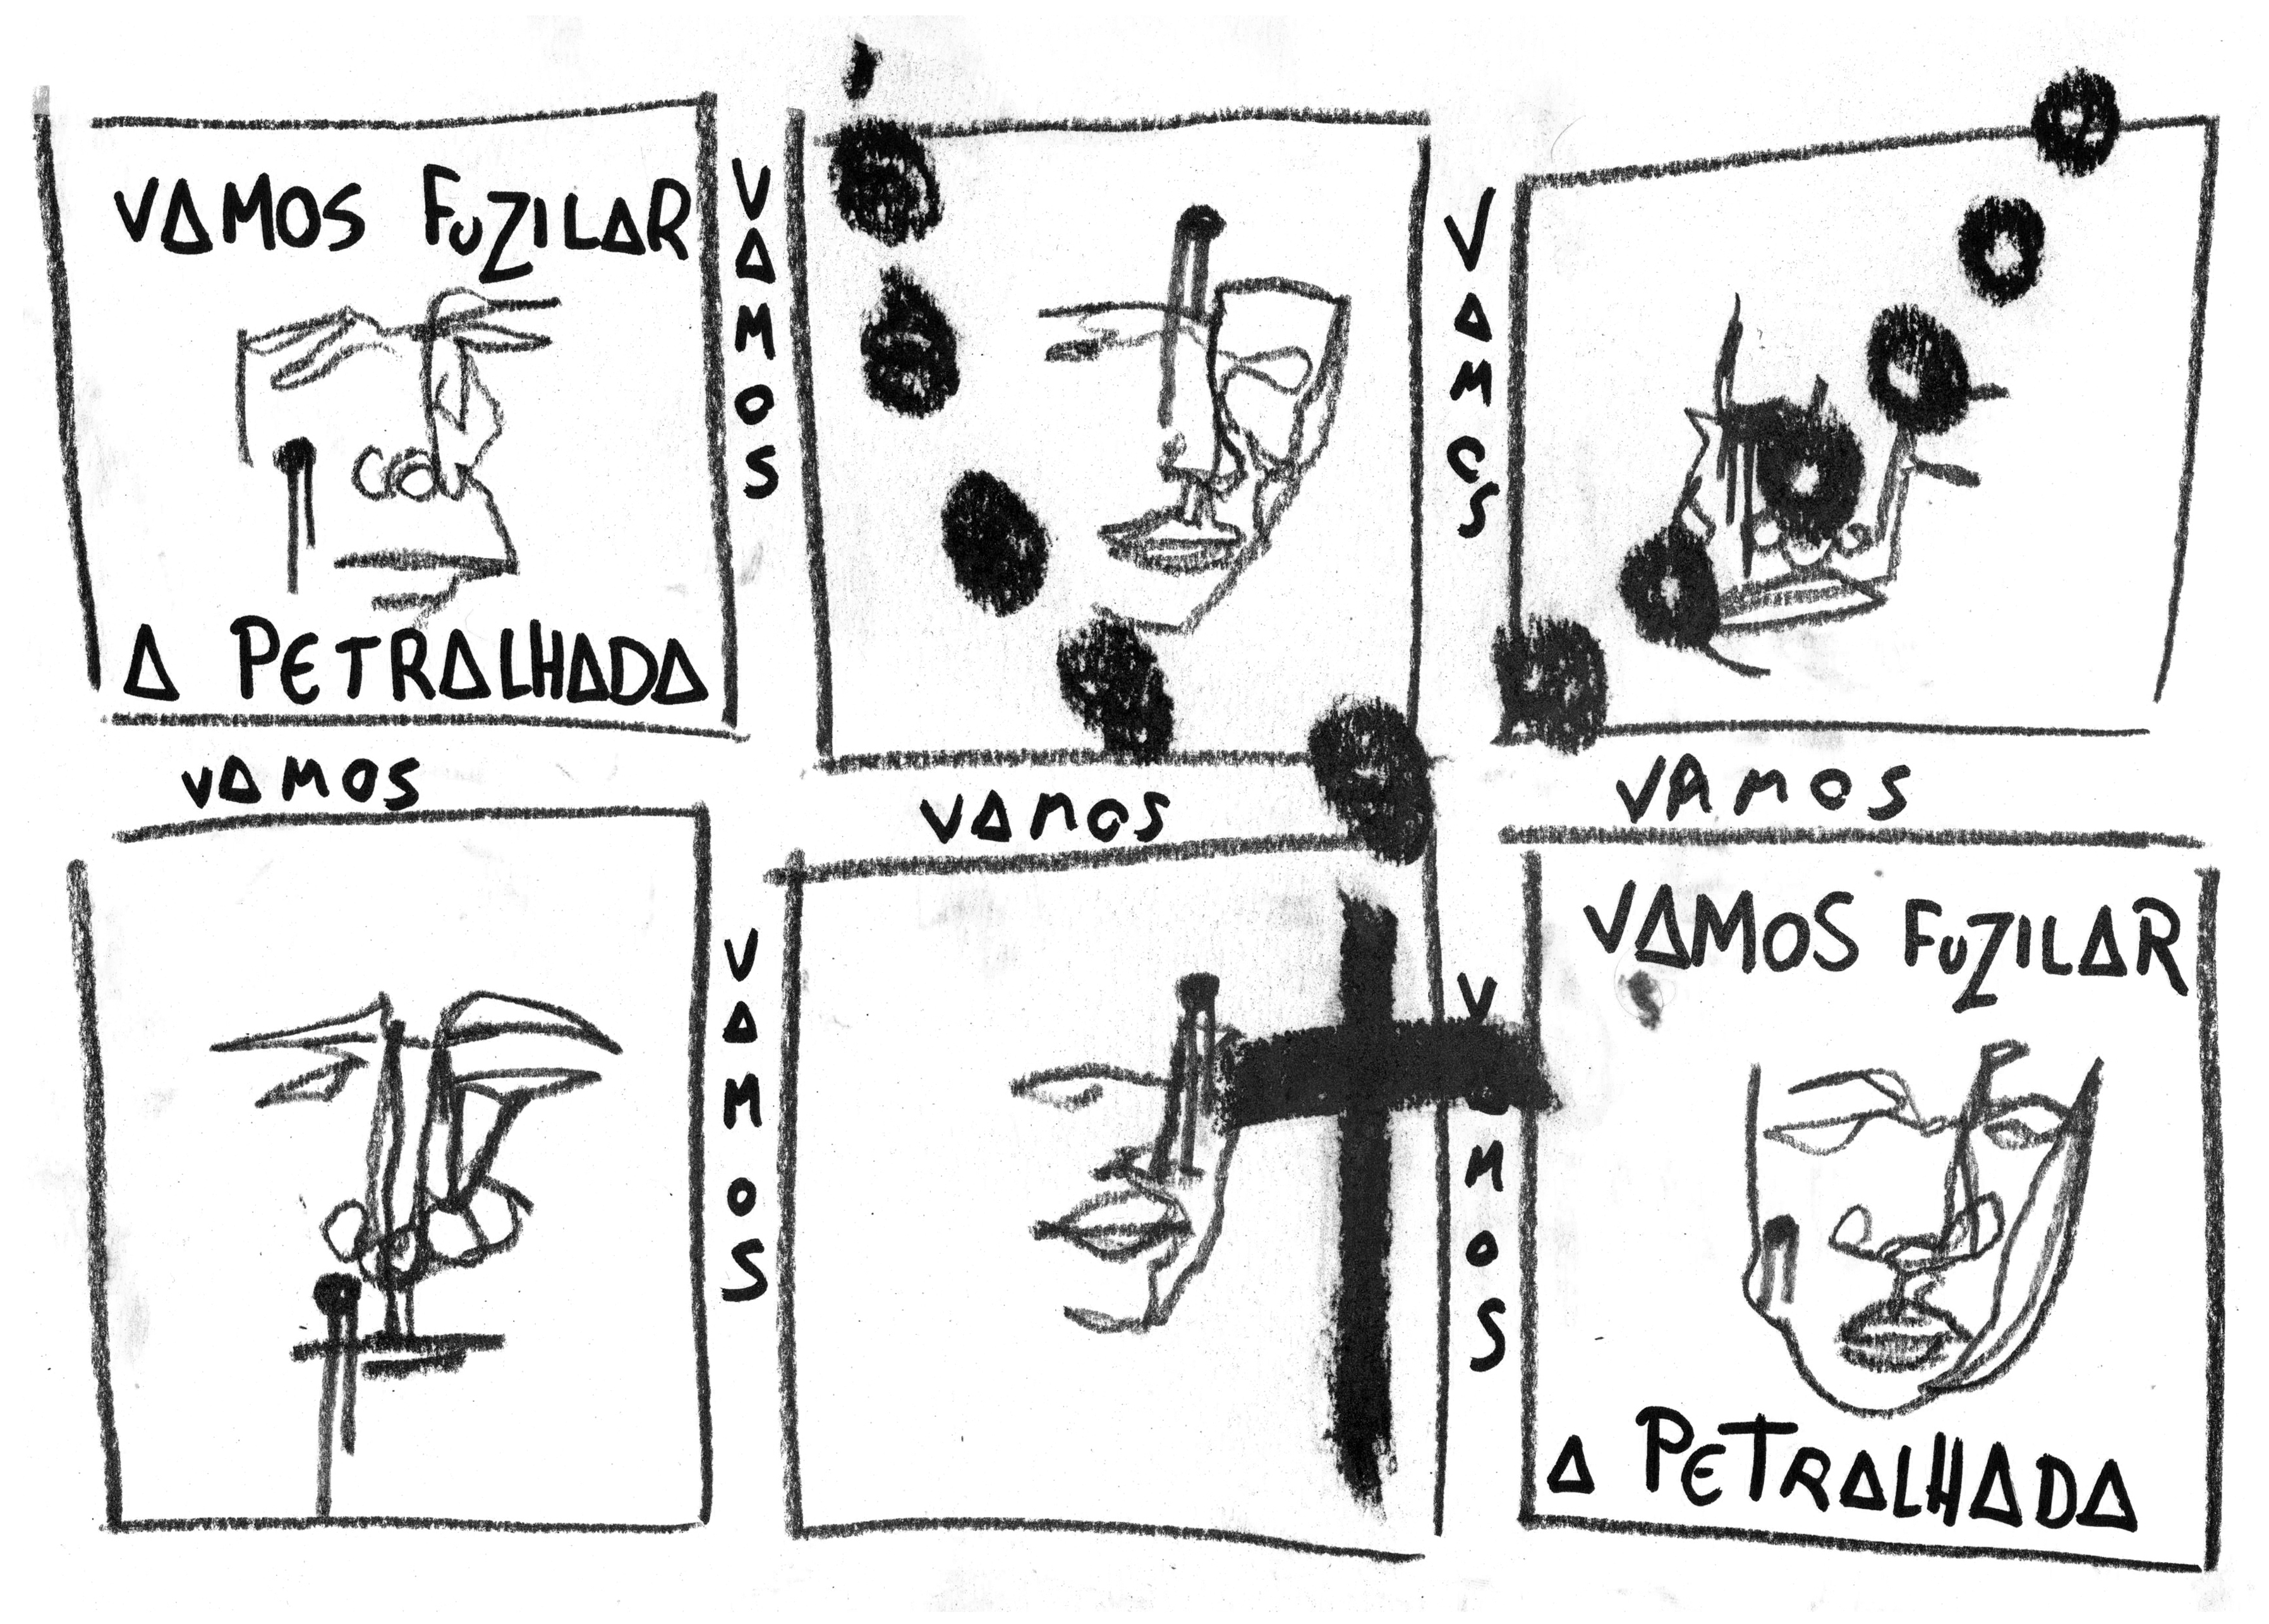 VAMOS FUZILAR
A PETRALHADA
VAMOS
VAMOS
VAMOS
VAMOS
VAMOS
VAMOS
VAMOS
VAMOS FUZILAR
A PETRALHADA